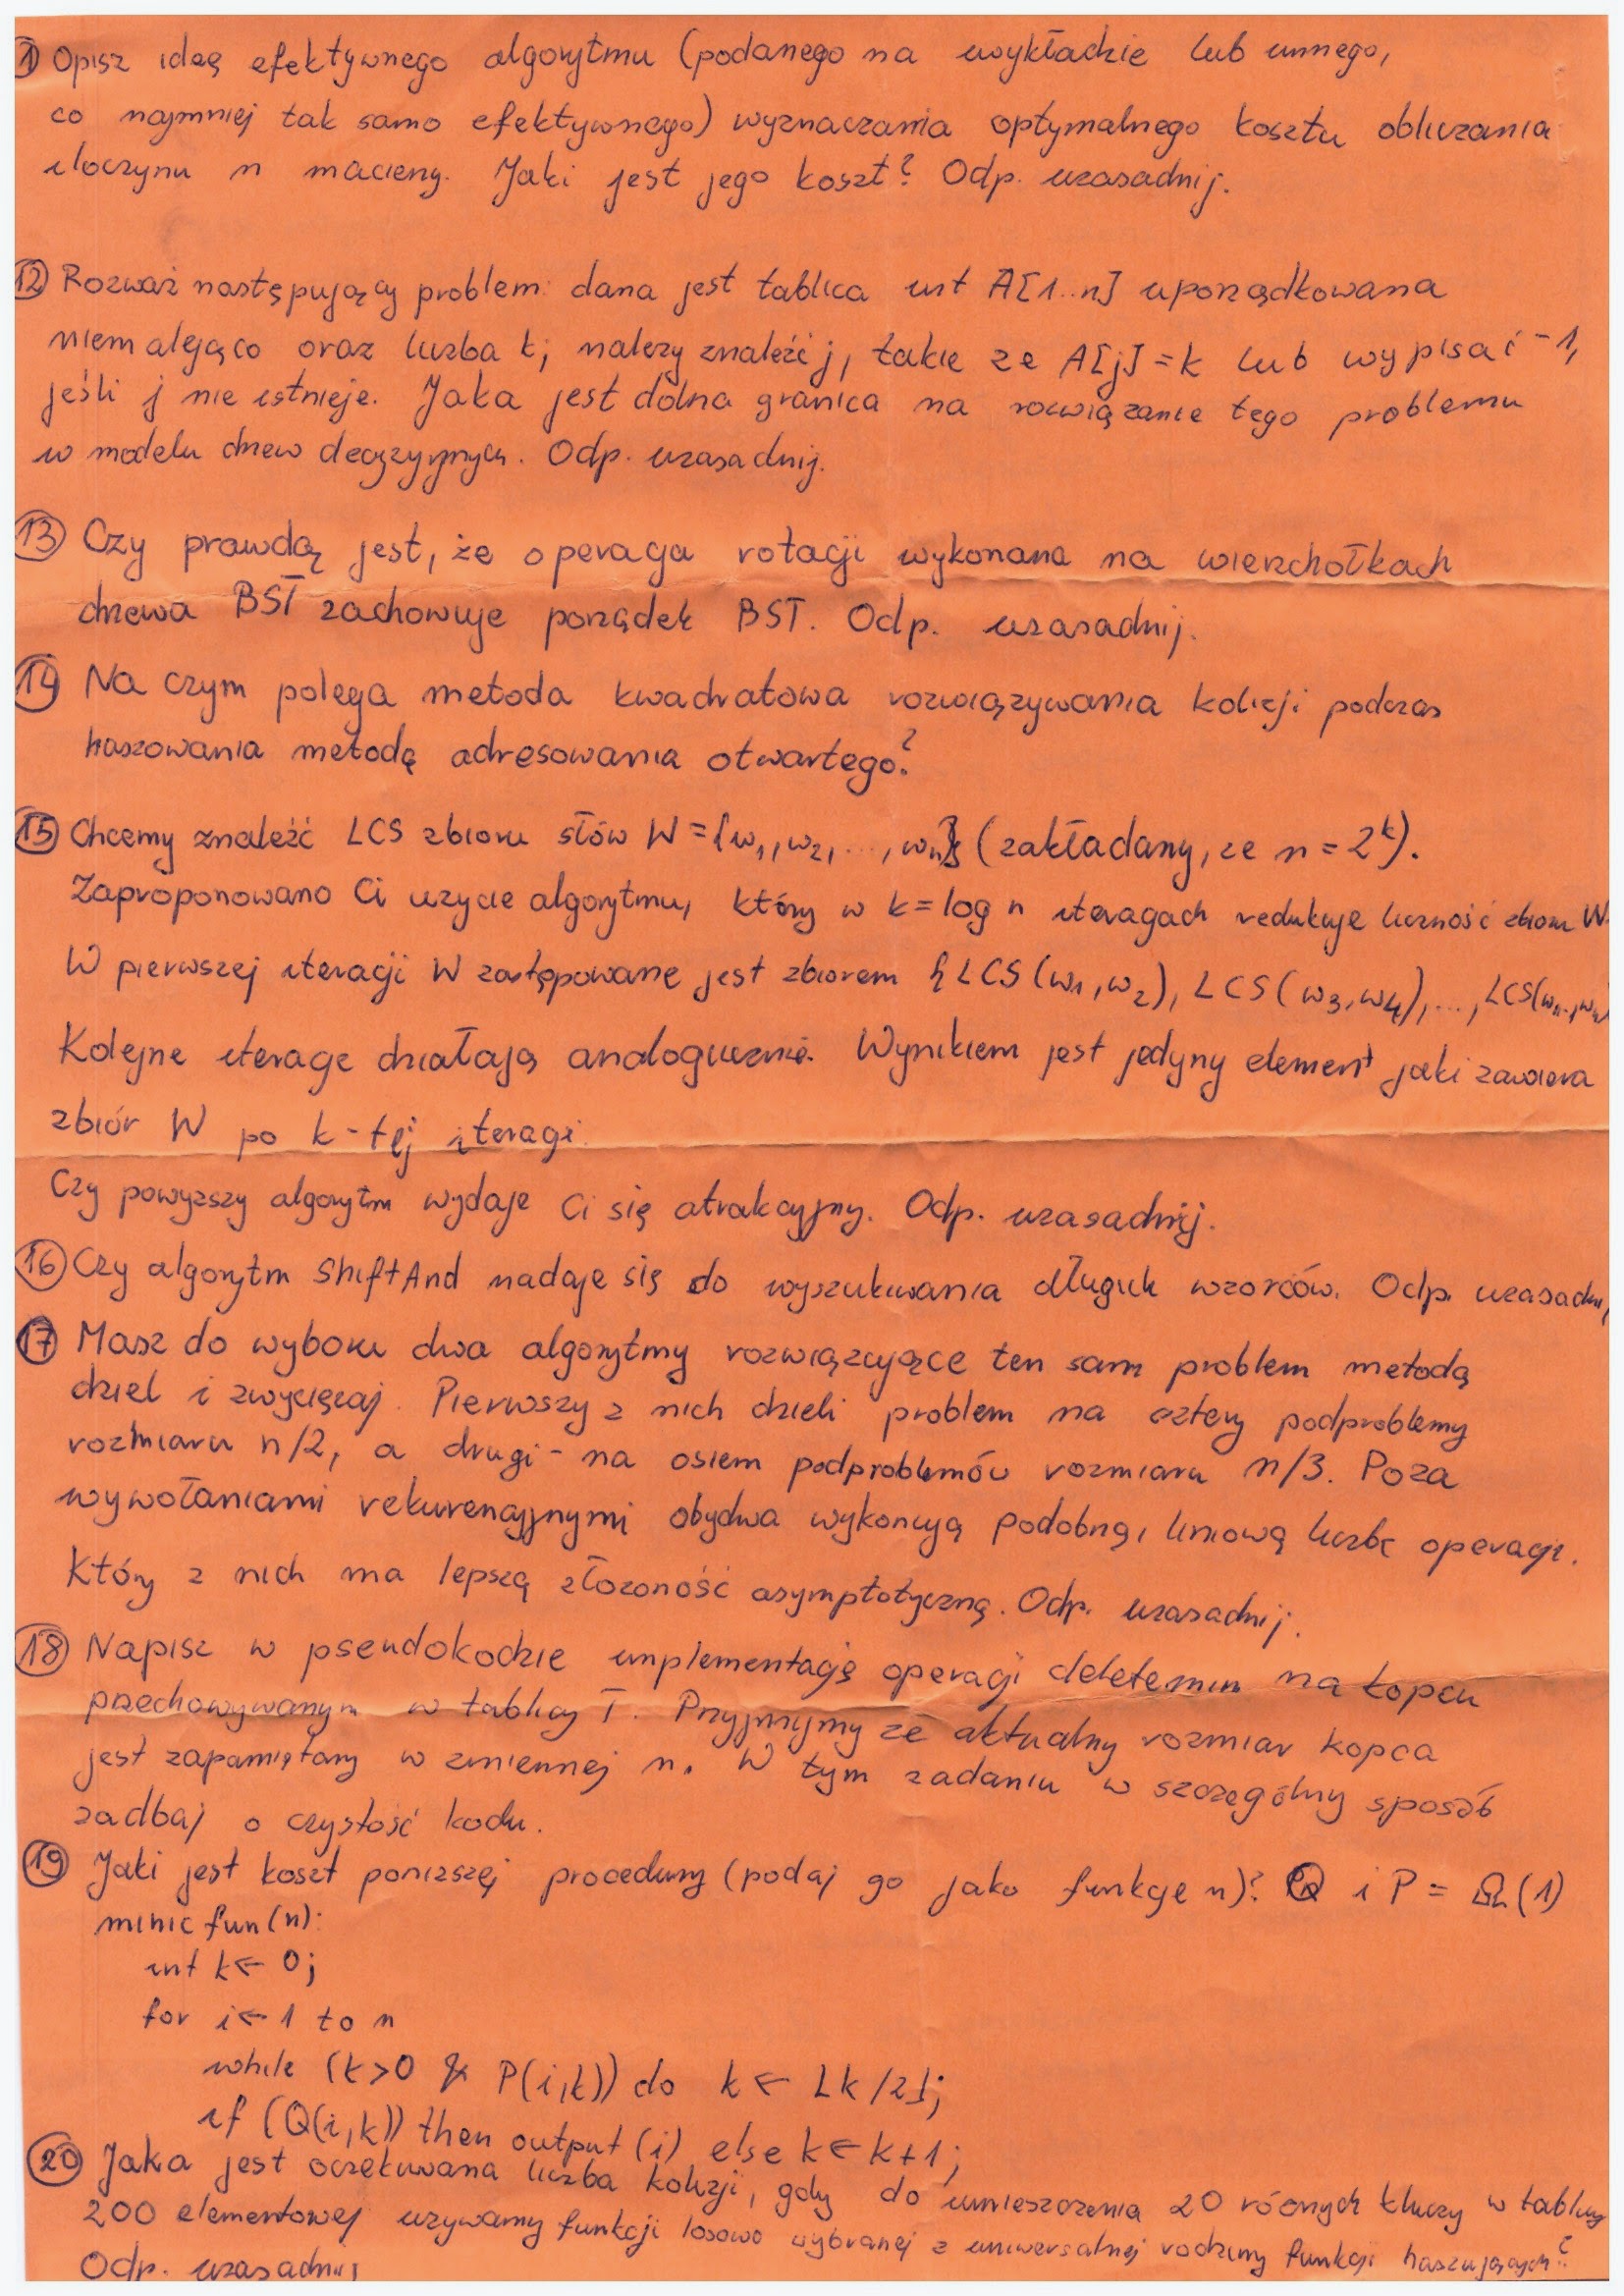 1) Opisz ideę efektywnego algorytmu (podanego na wykładzie lub innego,
co najmniej tak samo efektywnego) wyznaczania optymalnego kosztu obliczania
iloczynu n macierzy. Jaki jest jego koszt? Odp. uzasadnij.
12) Rozważ następujący problem: dana jest tablica int A[1..n] uporządkowana
niemalejąco oraz liczba k; należy znaleźć j, takie ze A[j]=k lub wypisać -1,
jeśli j nie istnieje. Jaka jest dolna granica na rozwiązanie tego problemu
w modelu drzew decyzyjnych. Odp. uzasadnij.
13) Czy prawdą jest, że operacja rotacji wykonana na wierzchołkach
drzewa BST zachowuje porządek BST. Odp. uzasadnij.
14) Na czym polega metoda kwadratowa rozwiązywania kolizji podczas
haszowania metodą adresowania otwartego?
15) Chcemy znaleźć LCS zbioru słów W = {w1, w2, ..., wn} (zakładamy, ze n = 2^k).
Zaproponowano Ci uzycie algorytmu, który w k = log n iteracjach redukuje liczność zbioru W.
W pierwszej iteracji W zastępowane jest zbiorem {LCS(w1, w2), LCS(w3, w4), ..., LCS(wn-1, wn)
Kolejne iteracje działają analogicznie. Wynikiem jest jedyny element jaki zawiera
zbiór W po k-tej iteracji.
Czy powyzszy algorytm wydaje Ci się atrakcyjny. Odp. uzasadnij.
16) Czy algorytm ShiftAnd nadaje się do wyszukiwania długich wzorców. Odp. uzasadnij
17) Masz do wyboru dwa algorytmy rozwiązujące ten sam problem metodą
dziel i zwyciężaj. Pierwszy z nich dzieli problem na cztery podproblemy
rozmiaru n/2, a drugi - na osiem podproblemów rozmiaru n/3. Poza
wywołaniami rekurencyjnymi obydwa wykonują podobną, liniową liczbę operacji.
Który z nich ma lepszą złozoność asymptotyczną. Odp. uzasadnij.
18) Napisz w pseudokodzie implementację operacji deletemin na kopcu
przechowywanym w tablicy T. Przyjmijmy ze aktualny rozmiar kopca
jest zapamiętany w zmiennej n. W tym zadaniu w szczególny sposób
zadbaj o czystość kodu.
19) Jaki jest koszt ponizszej procedury (podaj go jako funkcje n)? Q i P = Ω(1)
minic fun(n):
int k ← 0;
for i ← 1 to n
while (k>0 & P(i,k)) do k ← ⌊k/2⌋;
if (Q(i,k)) then output(i) else k ← k+1;
20) Jaka jest oczekiwana liczba kolizji, gdy do umieszczenia 20 róznych kluczy w tablicy
200 elementowej uzywamy funkcji losowo wybranej z uniwersalnej rodziny funkcji haszujących?
Odp. uzasadnij